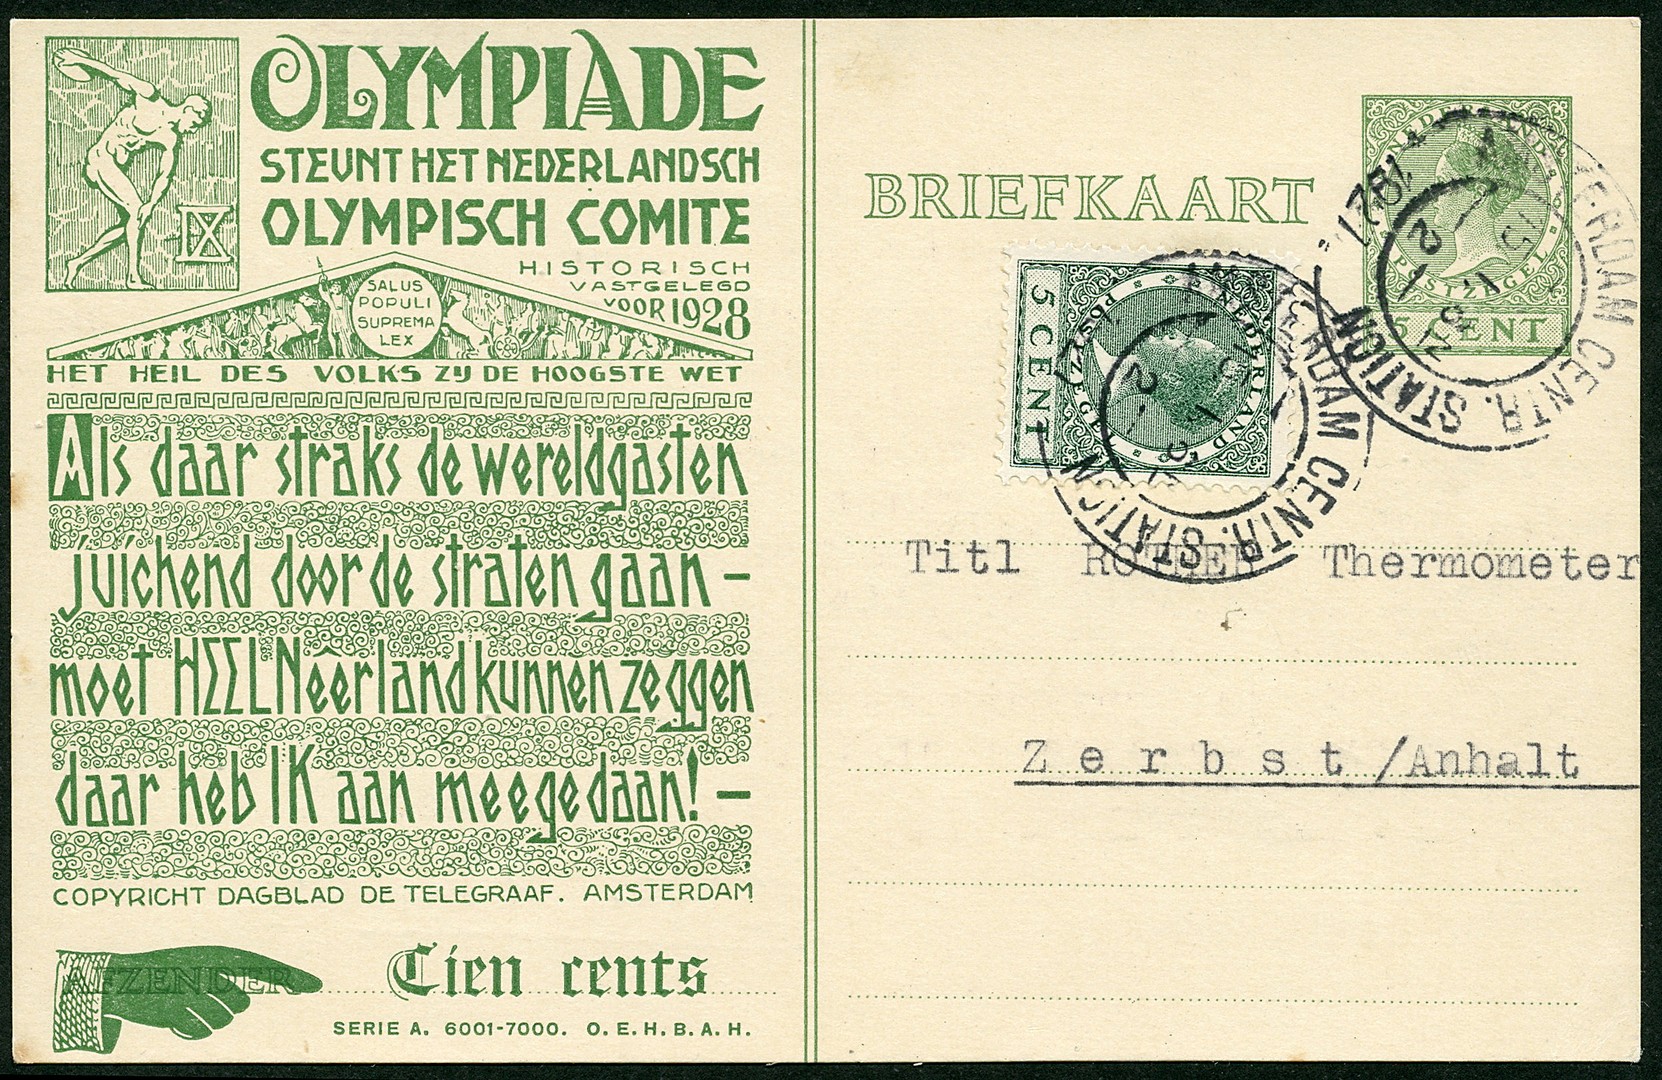 OLYMPIADE
STEUNT HET NEDERLANDSCH
OLYMPISCH COMITE
IX
HISTORISCH
VASTGELEGD
VOOR 1928
SALUS
POPULI
SUPREMA
LEX
HET HEIL DES VOLKS ZIJ DE HOOGSTE WET
Als daar straks de wereldgasten
juichend door de straten gaan –
moet HEEL Neêrland kunnen zeggen
daar heb IK aan meegedaan! –
COPYRIGHT DAGBLAD DE TELEGRAAF. AMSTERDAM
AFZENDER
Tien cents
SERIE A. 6001-7000. O.E.H.B.A.H.
BRIEFKAART
POSTZEGEL
5 CENT
CENTR. STATION
NEDERLAND
POSTZEGEL
5 CENT
CENTR. STATION
Titl ROTHER Thermometer
Zerbst/Anhalt